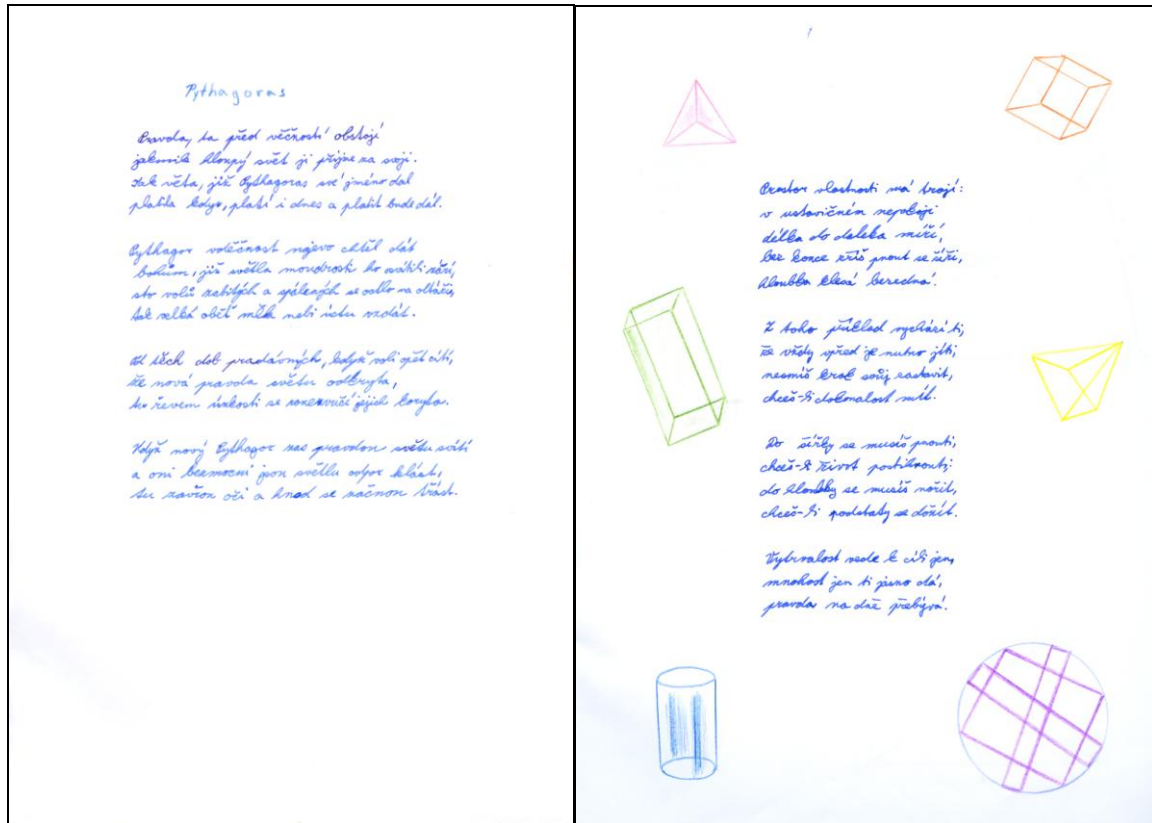 Pythagoras
Pravda, ta před věčností obstojí
jakmile hloupý svět ji přijme za svoji.
Jak věta, již Pythagoras své jméno dal
platila kdys, platí i dnes a platit bude dál.
Pythagor vděčnost najevo chtěl dát
bohům, již světla moudrosti ho osvítili září,
sto volů zabitých a spálených se octlo na oltáři,
tak velká oběť měla nebi úctu vzdát.
Od těch dob pradávných, kdykož voli opět cítí,
že nová pravda světu odkryta,
tu řevem úzkosti se rozezvučí jejich koryta.
Když nový Pythagor zas pravdou světu svítí
a oni bezmocní jsou světlu odpor klást,
tu zavřou oči a hned se začnou třást.
Prostor vlastnosti má trojí:
v ustavičném nepokoji
délka do daleka míří,
bez konce příč pnout se šíří,
hloubka klesá bezedná.
Z toho příklad vychází ti,
že vždy vpřed je nutno jíti,
nesmíš krok svůj zastavit,
chceš-li dokonalost mít.
Do šířky se musíš pnouti,
chceš-li život postihnouti;
do hloubky se musíš nořit,
chceš-li podstaty se dožít.
Vytrvalost vede k cíli jen,
mnohost jen ti jasno dá,
pravda na dně přebývá.